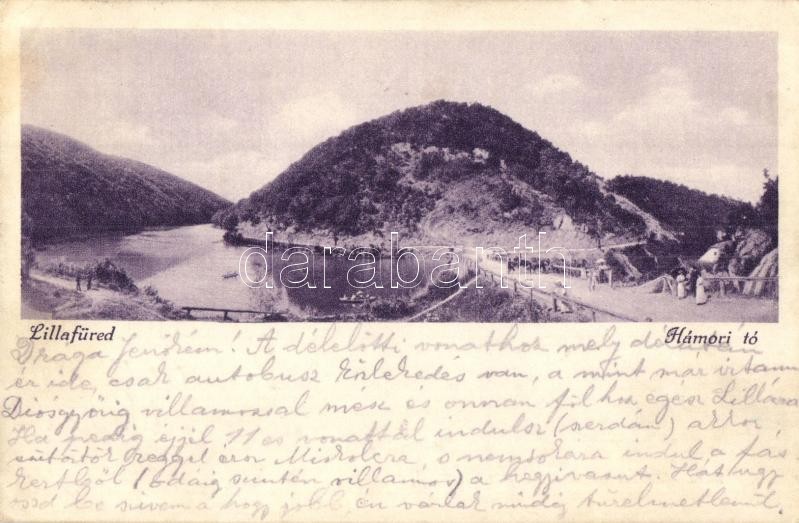 darabanth
Lillafüred
Hámori tó
Drága Jenőkém! A délelőtti vonathoz mely délután
ér ide, csak autobusz közlekedés van, a mint már irtam
Diósgyőrig villamossal mesz és onnan föl hoz egész Lillára
Ha pedig éjjel 11 es vonattal indulsz (szerdán) akkor
csütörtök reggel érsz Miskolcra, s nemsokára indul a
kertből (odáig szintén villamos) a hegyivasut. Hát ugy
oszd be szivem a hogy jobb, én várlak mindig türelmetlenül.